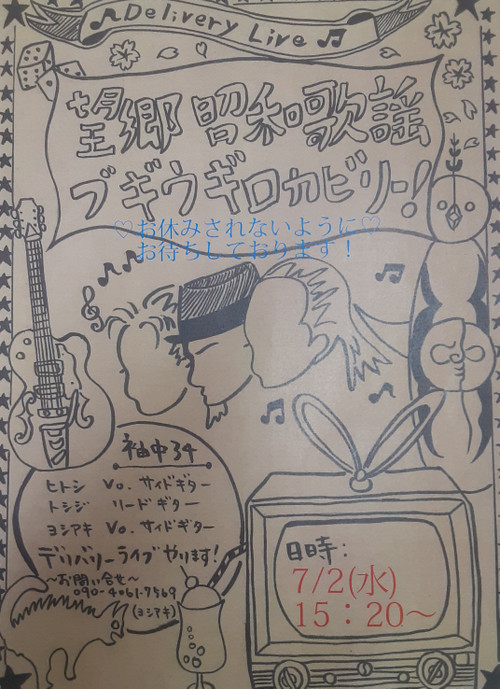 ♪Delivery Live♫
望郷 昭和歌謡
ブギウギロカビリー!
♡お休みされないように♡
お待ちしております！
袖中34
ヒトシ Vo. サイドギター
トシジ リードギター
ヨシアキ Vo. サイドギター
デリバリーライブやります!
〜お問い合せ〜
090-4061-7569
(ヨシアキ)
日時:
7/2(水)
15：20〜